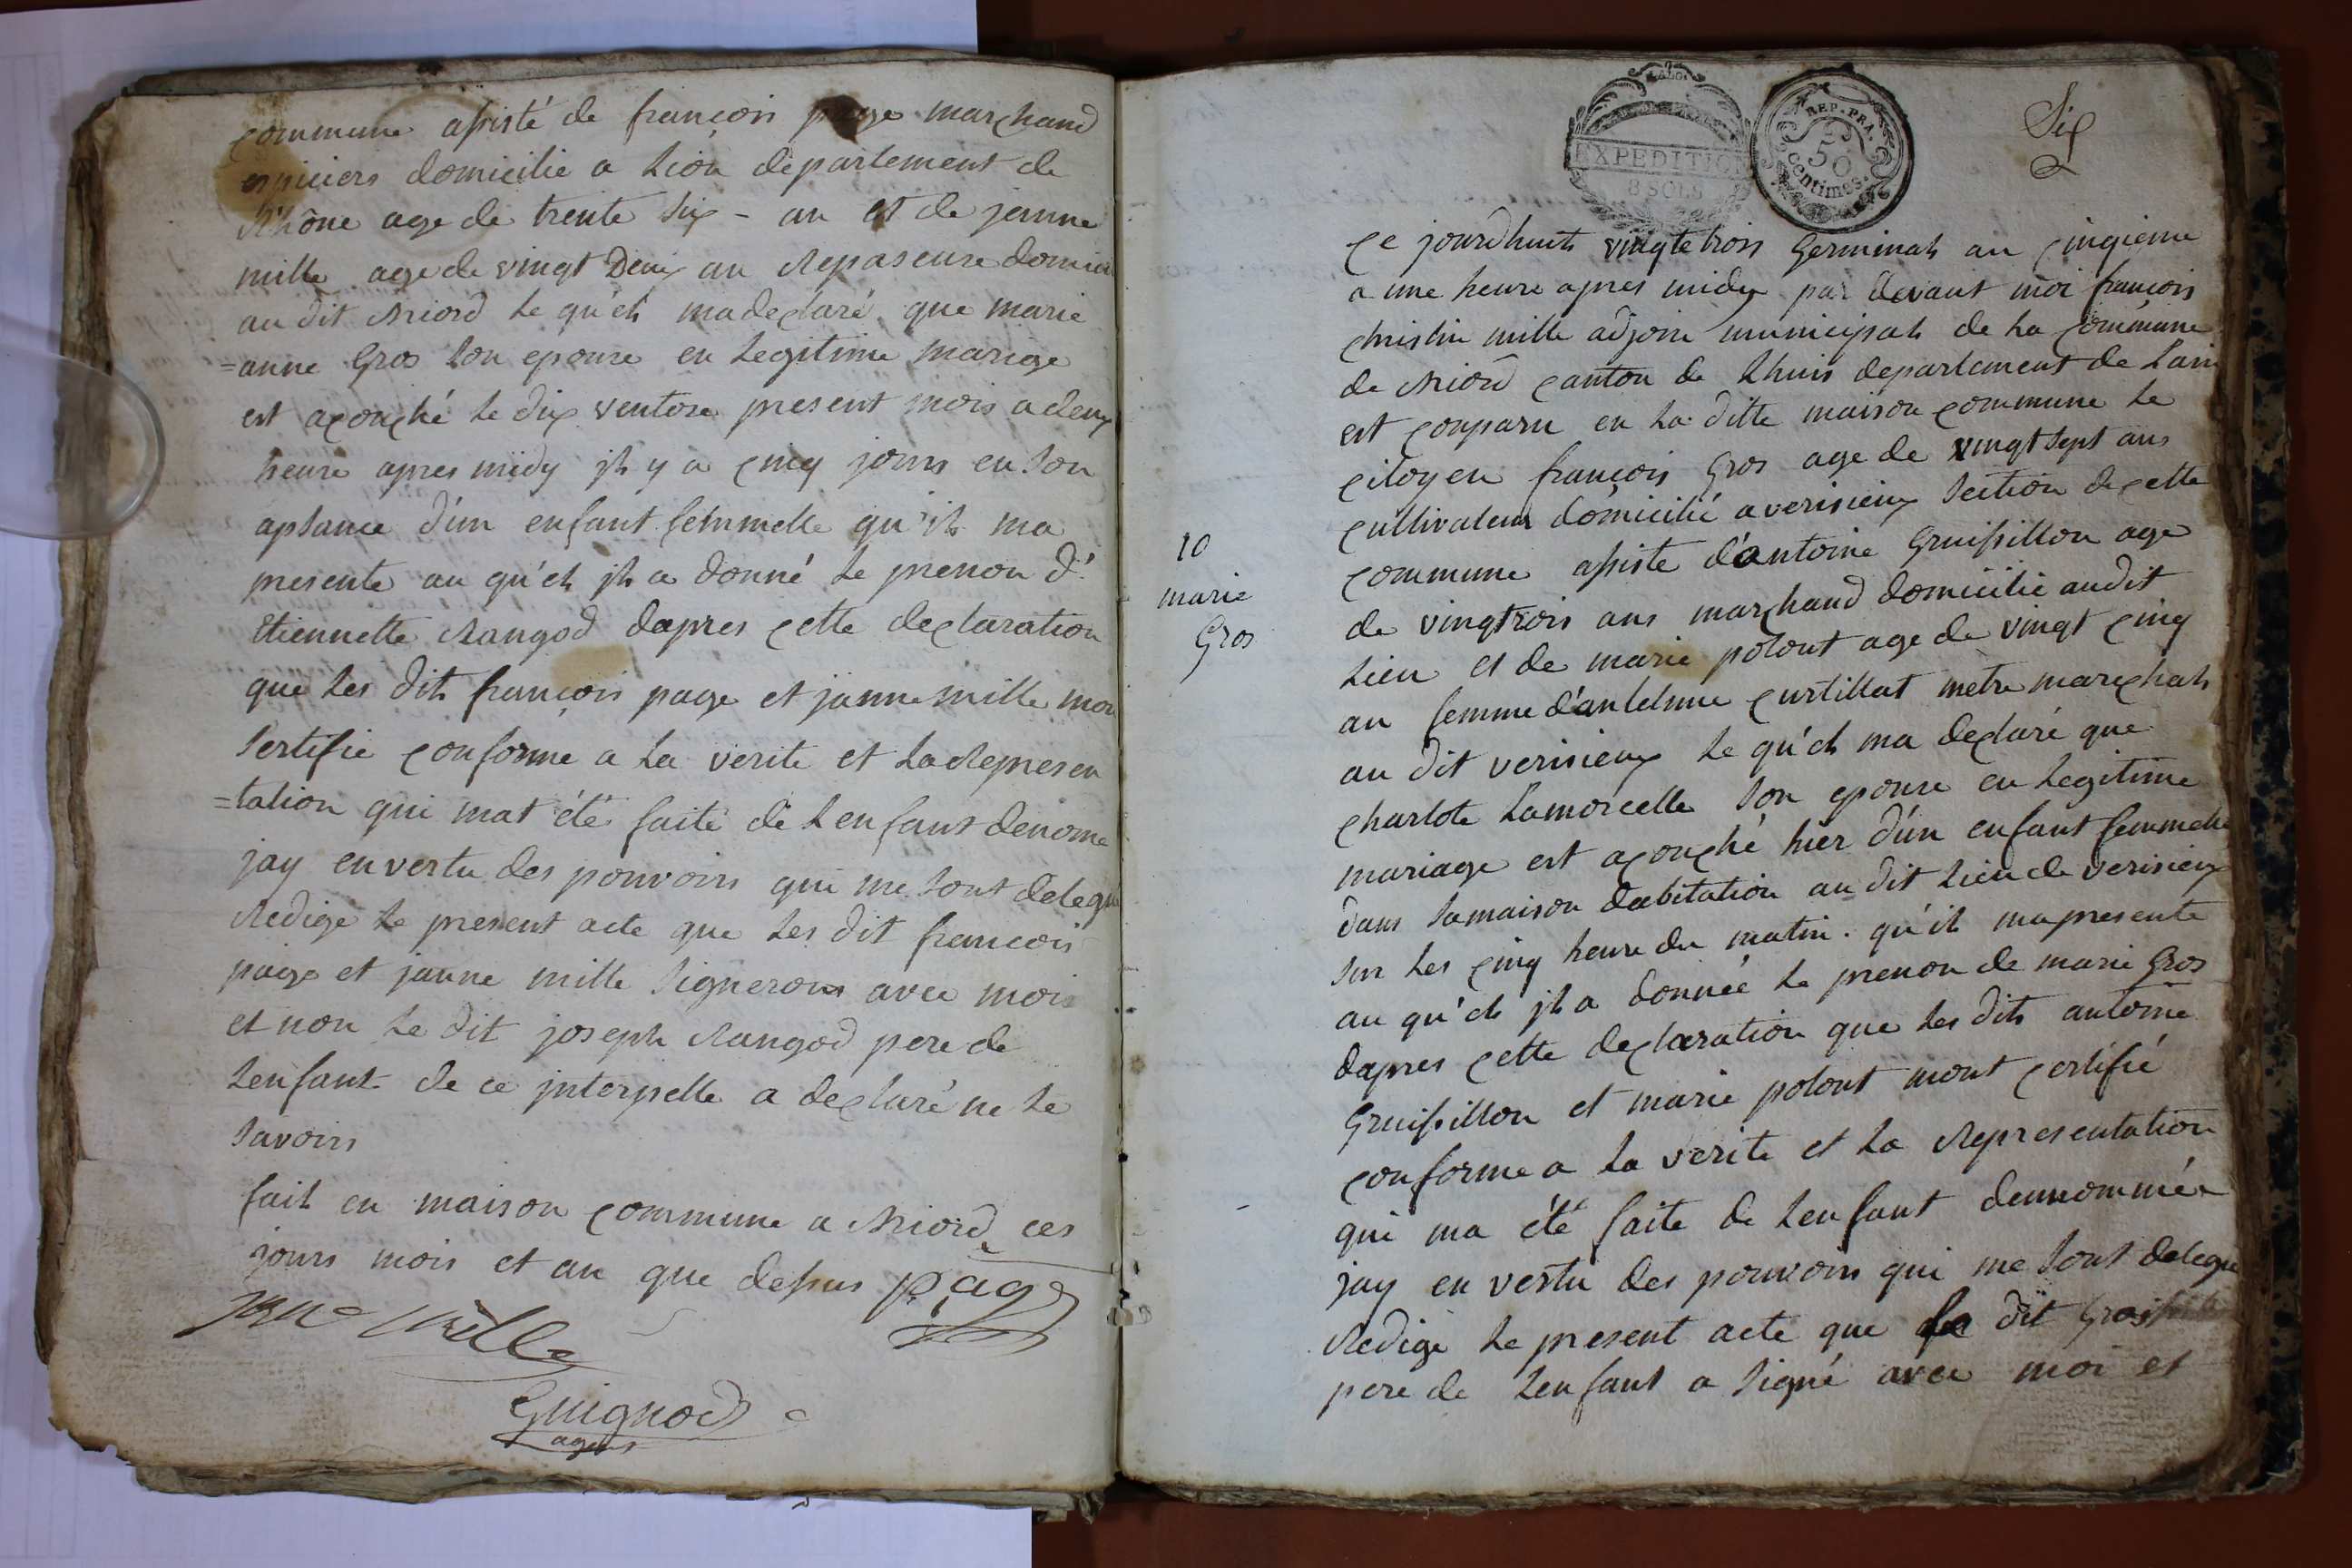 commune assisté de françois page marchand
espiciers domicilie a Lion departement de
Rhône age de trente six - an et de jeanne
mille age de vingt Deux an Repaseuse domici
au dit Briord le qu'el ma declaré que marie
=anne Gros son epouse en legitime mariage
est acouché le dix ventose present mois a deux
heure apres midy jl y a cinq jours en son
apsance d'un enfant femmelle qu'il ma
presente au qu'el jl a donné le prenon d'
Etiennette Rangod dapres cette declaration
que les dit françois page et janne mille mon
sertifie conforme a la verite et la Represen
=tation qui mat été faite de lenfant denome
jay en vertu des pouvoirs qui me sont delegu
Redige le present acte que les dit francois
page et janne mille signerons avec moi
et non le dit joseph Rangod pere de
lenfant de ce jnterpelle a declaré ne le
savoirs
fait en maison commune a Briord ces
jours mois et an que dessus page
jane mille
Guignod
agent
EXPEDITION
8 SOLS
REP. FRA.
50
centimes.
Six
Ce jourdhuit vingtetrois Germinal an cinqieme
a une heure apres midy par devant moi françois
christin mille adjoin municipal de la commune
de Briord canton de Lhuis departement de Lain
est conparu en la ditte maison commune le
citoyen françois Gros age de vingt sept ans
cultivateur domicilié a verisieux section de cette
commune assiste d'antoine Gruissillon age
de vingtrois ans marchand domicilié audit
lieu et de marie polout age de vingt cinq
an femme d'antelmme curtillat metre marechal
au dit verisieux le qu'el ma declaré que
charlote Lamorcelle son epouse en legitime
mariage est acouché hier d'un enfant femmelle
dans samaison dabitation au dit lieu de verisieux
sur les cinq heure du matin. qu'il mapresente
au qu'el jl a donnée le prenon de marie Gros
dapres cette declaration que les dits antoine
Gruissillon et marie polout mont certifié
conforme a la verite et la Representation
qui ma été faite de lenfant dennommée
jay en vertu des pouvoirs qui me sont delegue
Redige le present acte que le dit Gros
pere de lenfant a signé avec moi et
10
marie
Gros